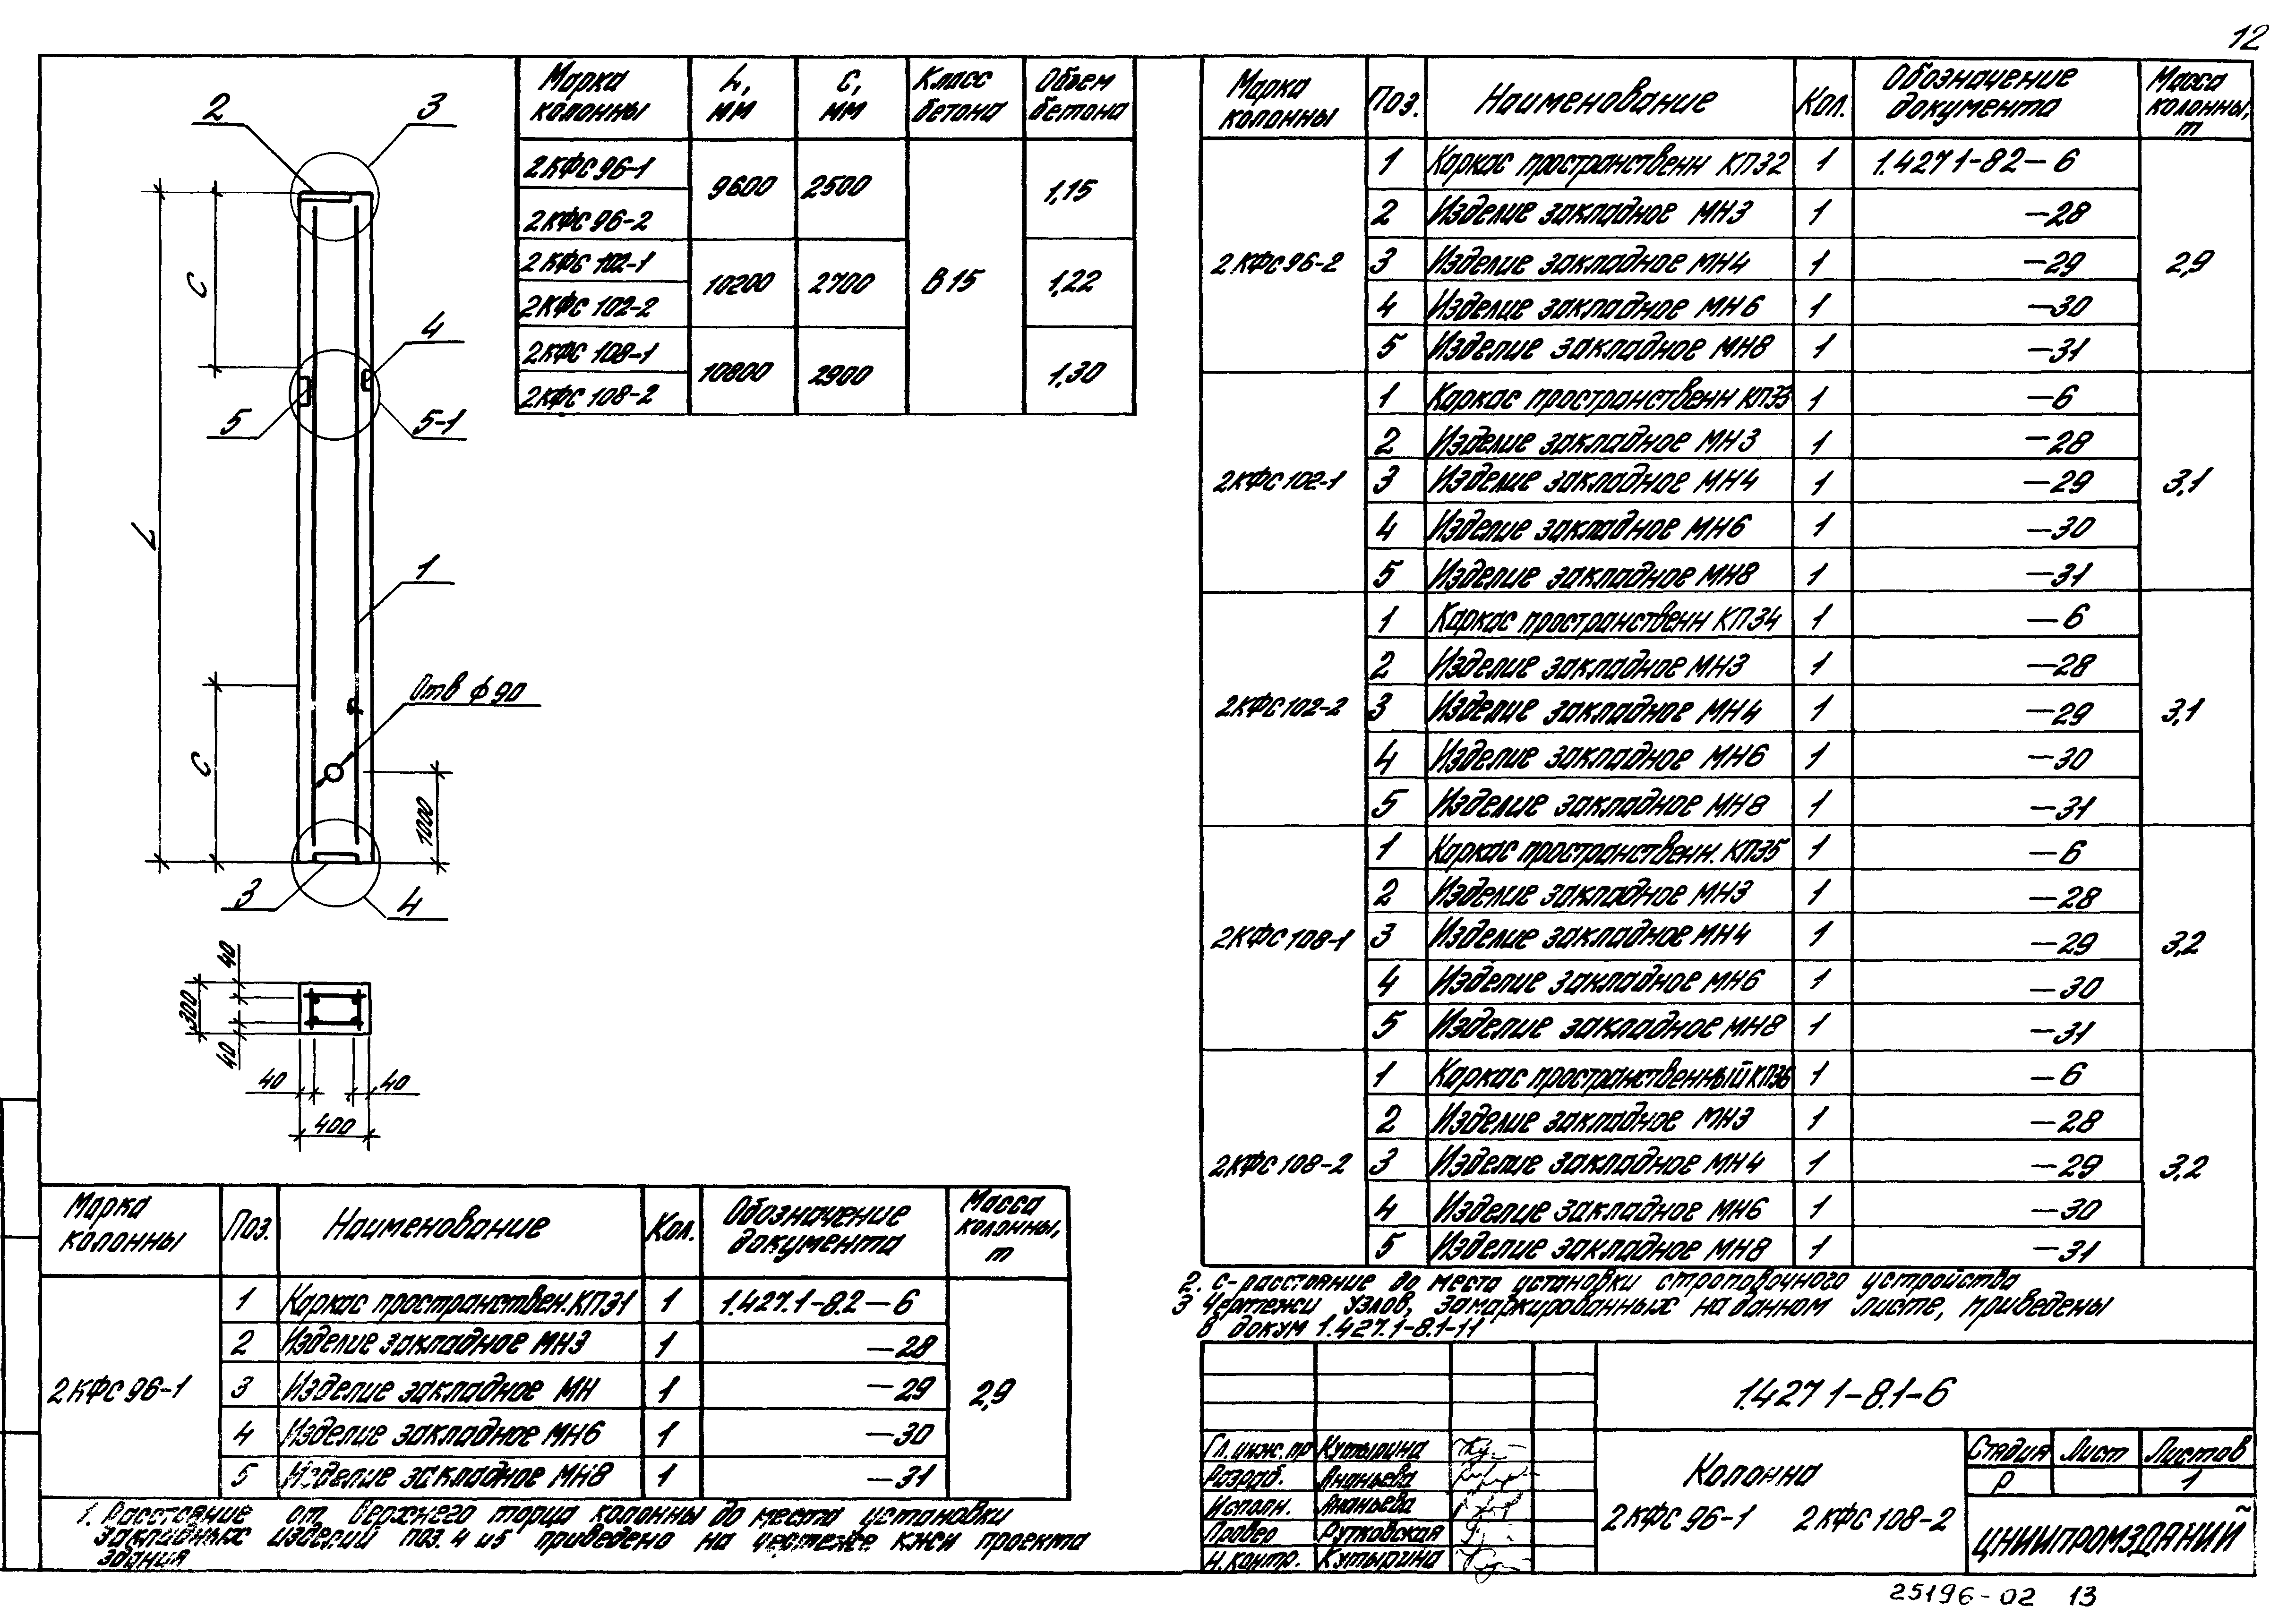 12
2
3
С
4
5
5-1
L
1
Отв ф90
С
1000
3
4
40
300
40
40
40
400
Марка колонны | L, мм | С, мм | Класс бетона | Объем бетона
2КФС 96-1 | 9600 | 2500 | В15 | 1,15
2КФС 96-2
2КФС 102-1 | 10200 | 2700 | 1,22
2КФС 102-2
2КФС 108-1 | 10800 | 2900 | 1,30
2КФС 108-2
Марка колонны | Поз. | Наименование | Кол. | Обозначение документа | Масса колонны, т
2КФС 96-1 | 2,9
1 | Каркас пространствен. КП31 | 1 | 1.427.1-8.2-6
2 | Изделие закладное МН3 | 1 | -28
3 | Изделие закладное МН | 1 | -29
4 | Изделие закладное МН6 | 1 | -30
5 | Изделие закладное МН8 | 1 | -31
1. Расстояние от верхнего торца колонны до места установки
закладных изделий поз. 4 и 5 приведено на чертеже КЖИ проекта
здания
Марка колонны | Поз. | Наименование | Кол. | Обозначение документа | Масса колонны, т
2КФС 96-2 | 2,9
1 | Каркас пространственн КП32 | 1 | 1.427 1-82-6
2 | Изделие закладное МН3 | 1 | -28
3 | Изделие закладное МН4 | 1 | -29
4 | Изделие закладное МН6 | 1 | -30
5 | Изделие закладное МН8 | 1 | -31
2КФС 102-1 | 3,1
1 | Каркас пространственн КП33 | 1 | -6
2 | Изделие закладное МН3 | 1 | -28
3 | Изделие закладное МН4 | 1 | -29
4 | Изделие закладное МН6 | 1 | -30
5 | Изделие закладное МН8 | 1 | -31
2КФС 102-2 | 3,1
1 | Каркас пространственн КП34 | 1 | -6
2 | Изделие закладное МН3 | 1 | -28
3 | Изделие закладное МН4 | 1 | -29
4 | Изделие закладное МН6 | 1 | -30
5 | Изделие закладное МН8 | 1 | -31
2КФС 108-1 | 3,2
1 | Каркас пространственн. КП35 | 1 | -6
2 | Изделие закладное МН3 | 1 | -28
3 | Изделие закладное МН4 | 1 | -29
4 | Изделие закладное МН6 | 1 | -30
5 | Изделие закладное МН8 | 1 | -31
2КФС 108-2 | 3,2
1 | Каркас пространственный КП36 | 1 | -6
2 | Изделие закладное МН3 | 1 | -28
3 | Изделие закладное МН4 | 1 | -29
4 | Изделие закладное МН6 | 1 | -30
5 | Изделие закладное МН8 | 1 | -31
2. С- расстояние до места установки строповочного устройства
3 Чертежи узлов, замаркированных на данном листе, приведены
в докум 1.427.1-8.1-11
1.427 1-8.1-6
Гл. инж. пр Кутырина
Разраб. Ананьева
Исполн. Ананьева
Провер Рутковская
Н. контр. Кутырина
Колонна
2КФС 96-1 2КФС 108-2
Стадия | Лист | Листов
Р | | 1
ЦНИИПРОМЗДАНИЙ
25196-02 13